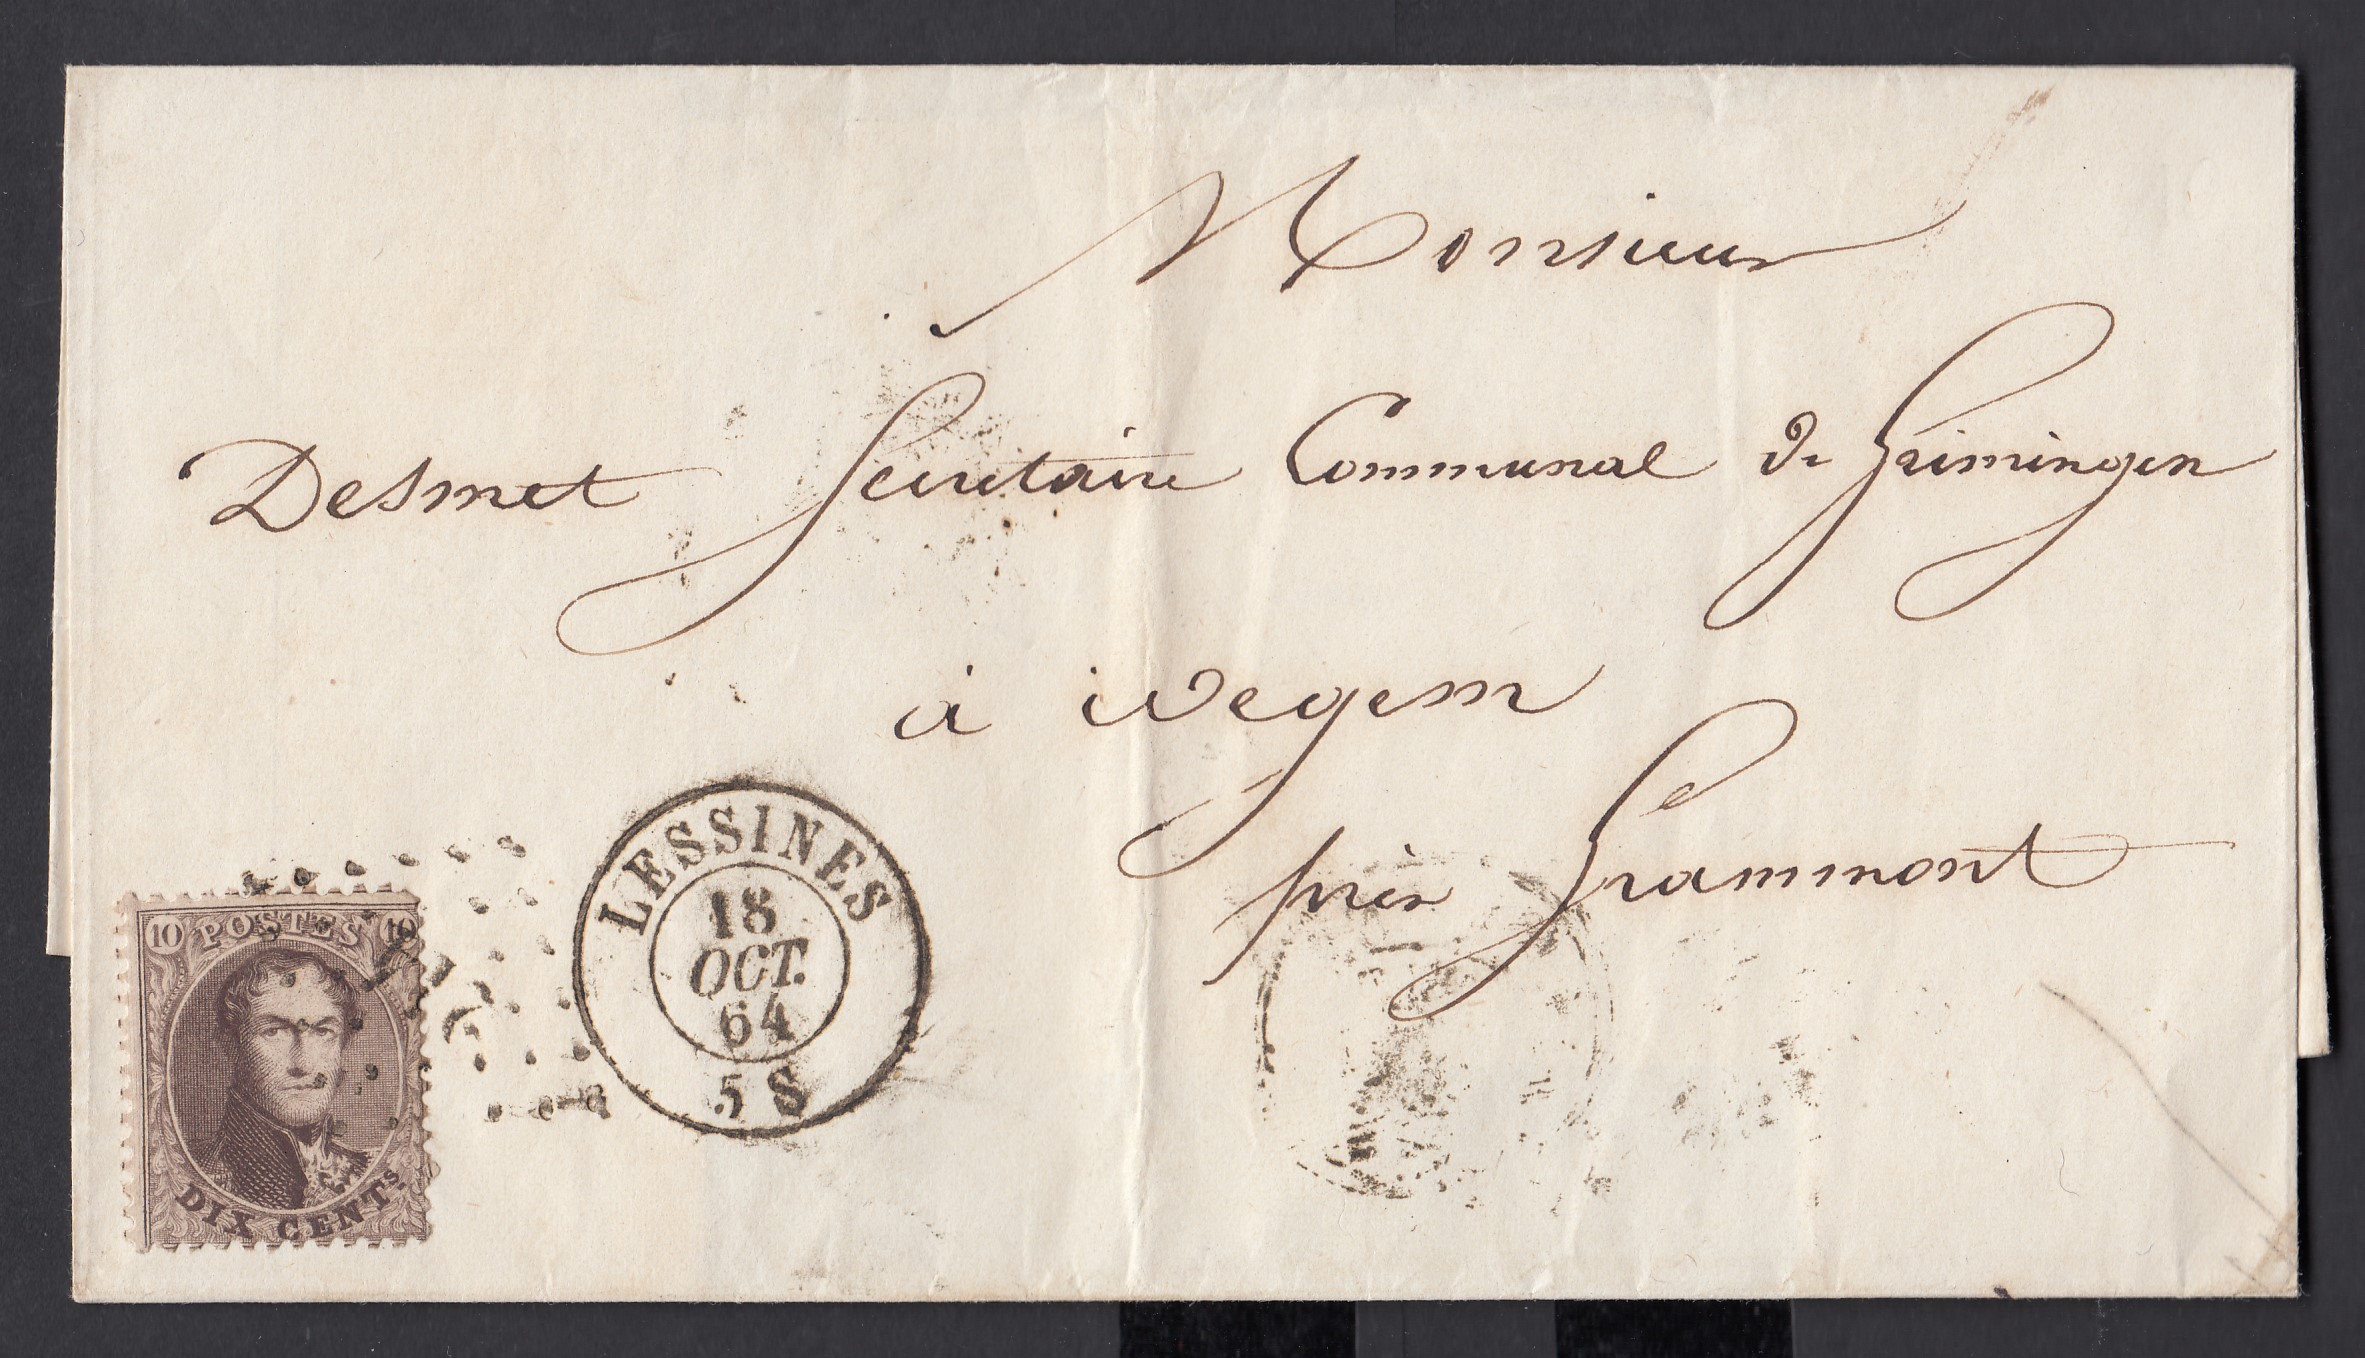 Monsieur
Desmet Secretaire Communal de Grimingen
à idegem
près Grammont
LESSINES
18
OCT.
64
5 S
10 POSTES 10
DIX CENTS